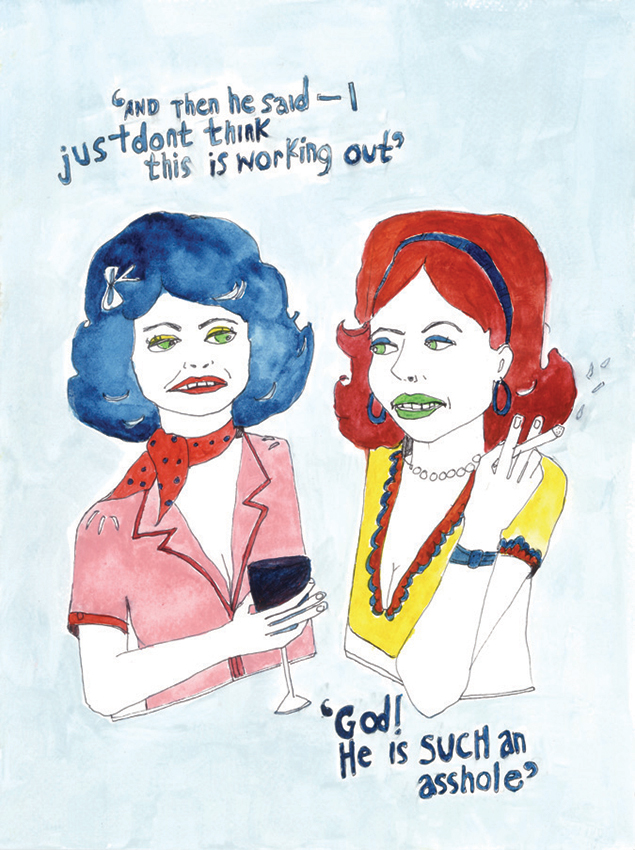 ‘AND Then he said – I
just dont think
this is working out’
‘God!
He is SUCH an
asshole’